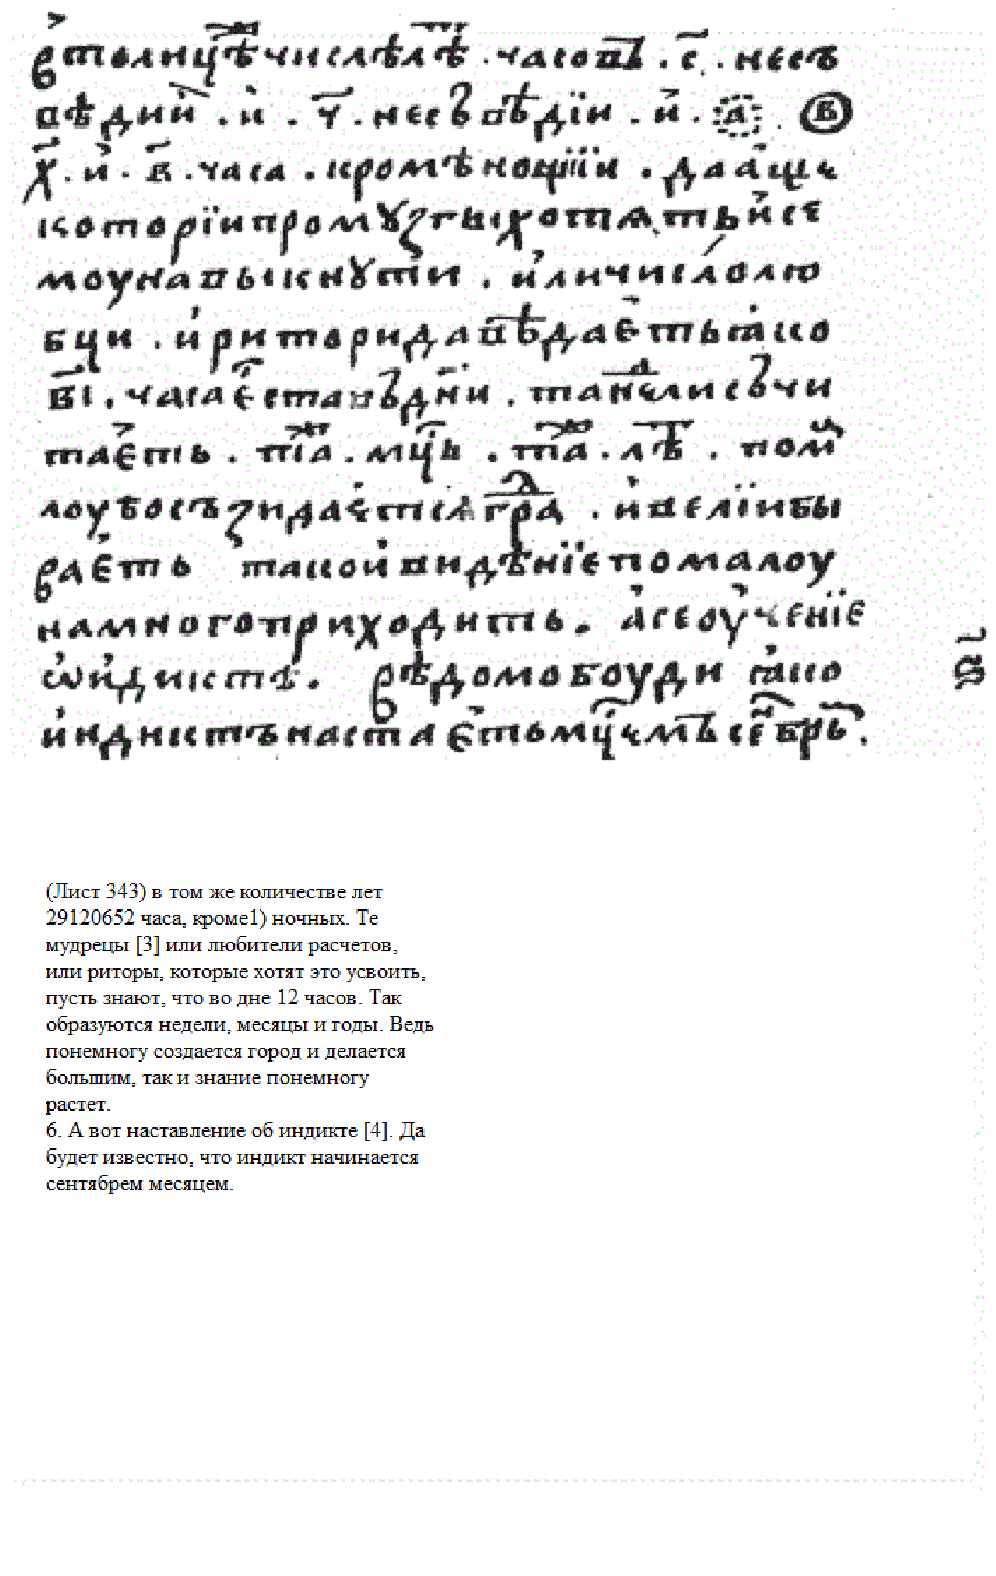 в толицѣ числѣ лѣ . часовъ . с҃ . несъ
вѣдии . и . ч҃ . несъвѣдїи . и . а в
х҃ . и . в҃ . часа . кромѣ нощїи . да аще
которїи промузгы хотѧть и се
моу навыкнути . или числолю
бци . и ритори да вѣдаеть ꙗко
в҃і . часа е ста въ дни . та нели съчи
таеть . та . мць . та . лѣ . пом
лоу бо съзидаетсѧ гра . и велїи бы
ваеть тако и видѣнїе помалоу
на много приходить . а се оученїе
ѡ индиктѣ . вѣдомо боуди ꙗко
ѕ҃
индиктъ настаеть мцемъ себерь .
(Лист 343) в том же количестве лет
29120652 часа, кроме1) ночных. Те
мудрецы [3] или любители расчетов,
или риторы, которые хотят это усвоить,
пусть знают, что во дне 12 часов. Так
образуются недели, месяцы и годы. Ведь
понемногу создается город и делается
большим, так и знание понемногу
растет.
6. А вот наставление об индикте [4]. Да
будет известно, что индикт начинается
сентябрем месяцем.